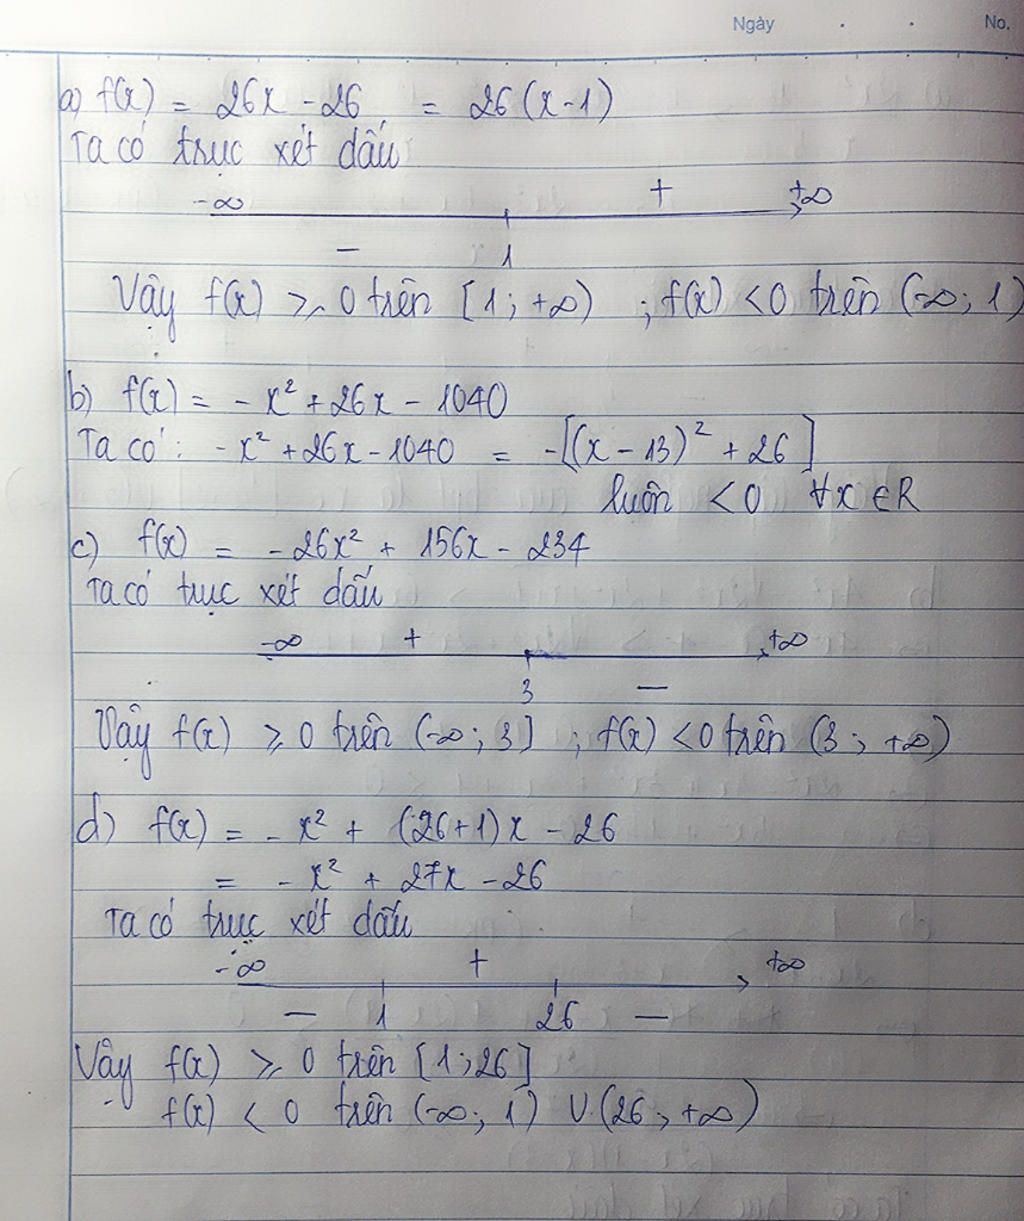 Ngày No.
a) f(x) = 26x - 26 = 26(x-1)
Ta có trục xét dấu
-∞ + +∞
- 1
Vậy f(x) ≥ 0 trên [1; +∞) ; f(x) < 0 trên (-∞; 1)
b) f(x) = - x² + 26x - 1040
Ta có: -x² + 26x - 1040 = -[(x - 13)² + 26]
luôn < 0 ∀x ∈ R
c) f(x) = - 26x² + 156x - 234
Ta có trục xét dấu
-∞ + +∞
3 -
Vậy f(x) ≥ 0 trên (-∞; 3] ; f(x) < 0 trên (3; +∞)
d) f(x) = - x² + (26+1)x - 26
= - x² + 27x - 26
Ta có trục xét dấu
-∞ + +∞
- 1 26 -
Vậy f(x) ≥ 0 trên [1; 26]
f(x) < 0 trên (-∞; 1) ∪ (26; +∞)